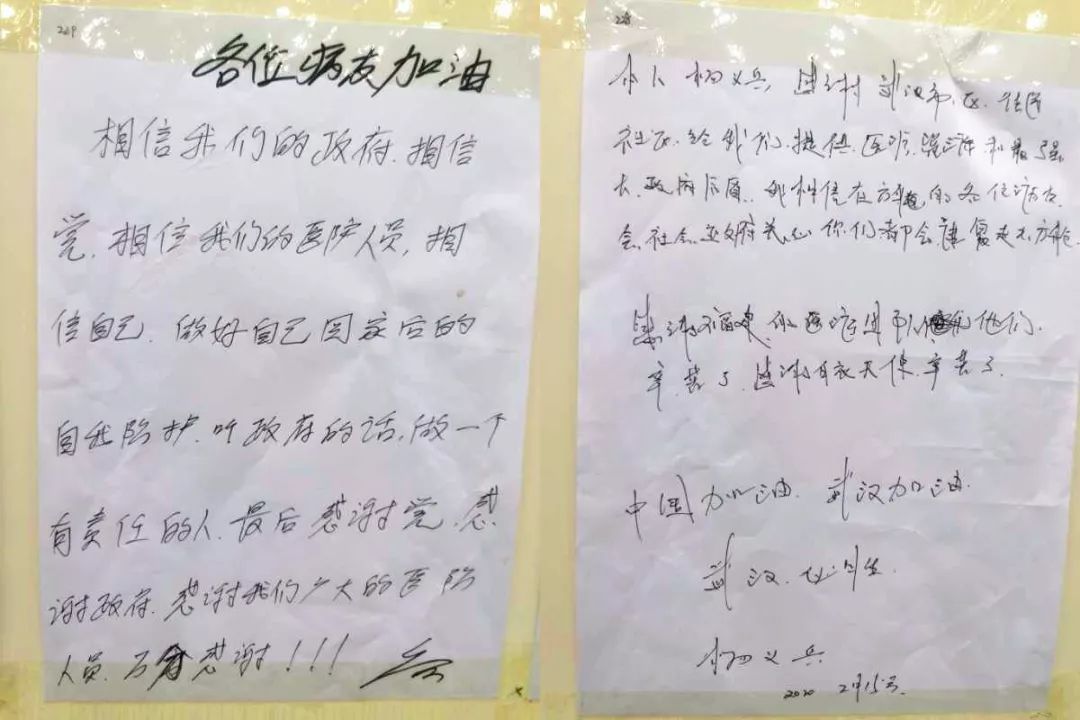 219
各位病友加油
相信我们的政府.相信
党.相信我们的医护人员,相
信自己.做好自己回家后的
自我防护.听政府的话,做一个
有责任的人.最后感谢党.感
谢政府.感谢我们广大的医防
人员.万分感谢!!!
本人杨义兵,感谢武汉市.区.
社区.给我们.提供.医疗.和最强
大.政府后盾.我相信在方舱的各位
会.社会.政府关心你们都会康复走出方舱.
感谢福建的医疗团队他们.
辛苦了.感谢白衣天使.辛苦了.
中国加油.武汉加油.
武汉.
杨义兵
2020 2月15号.